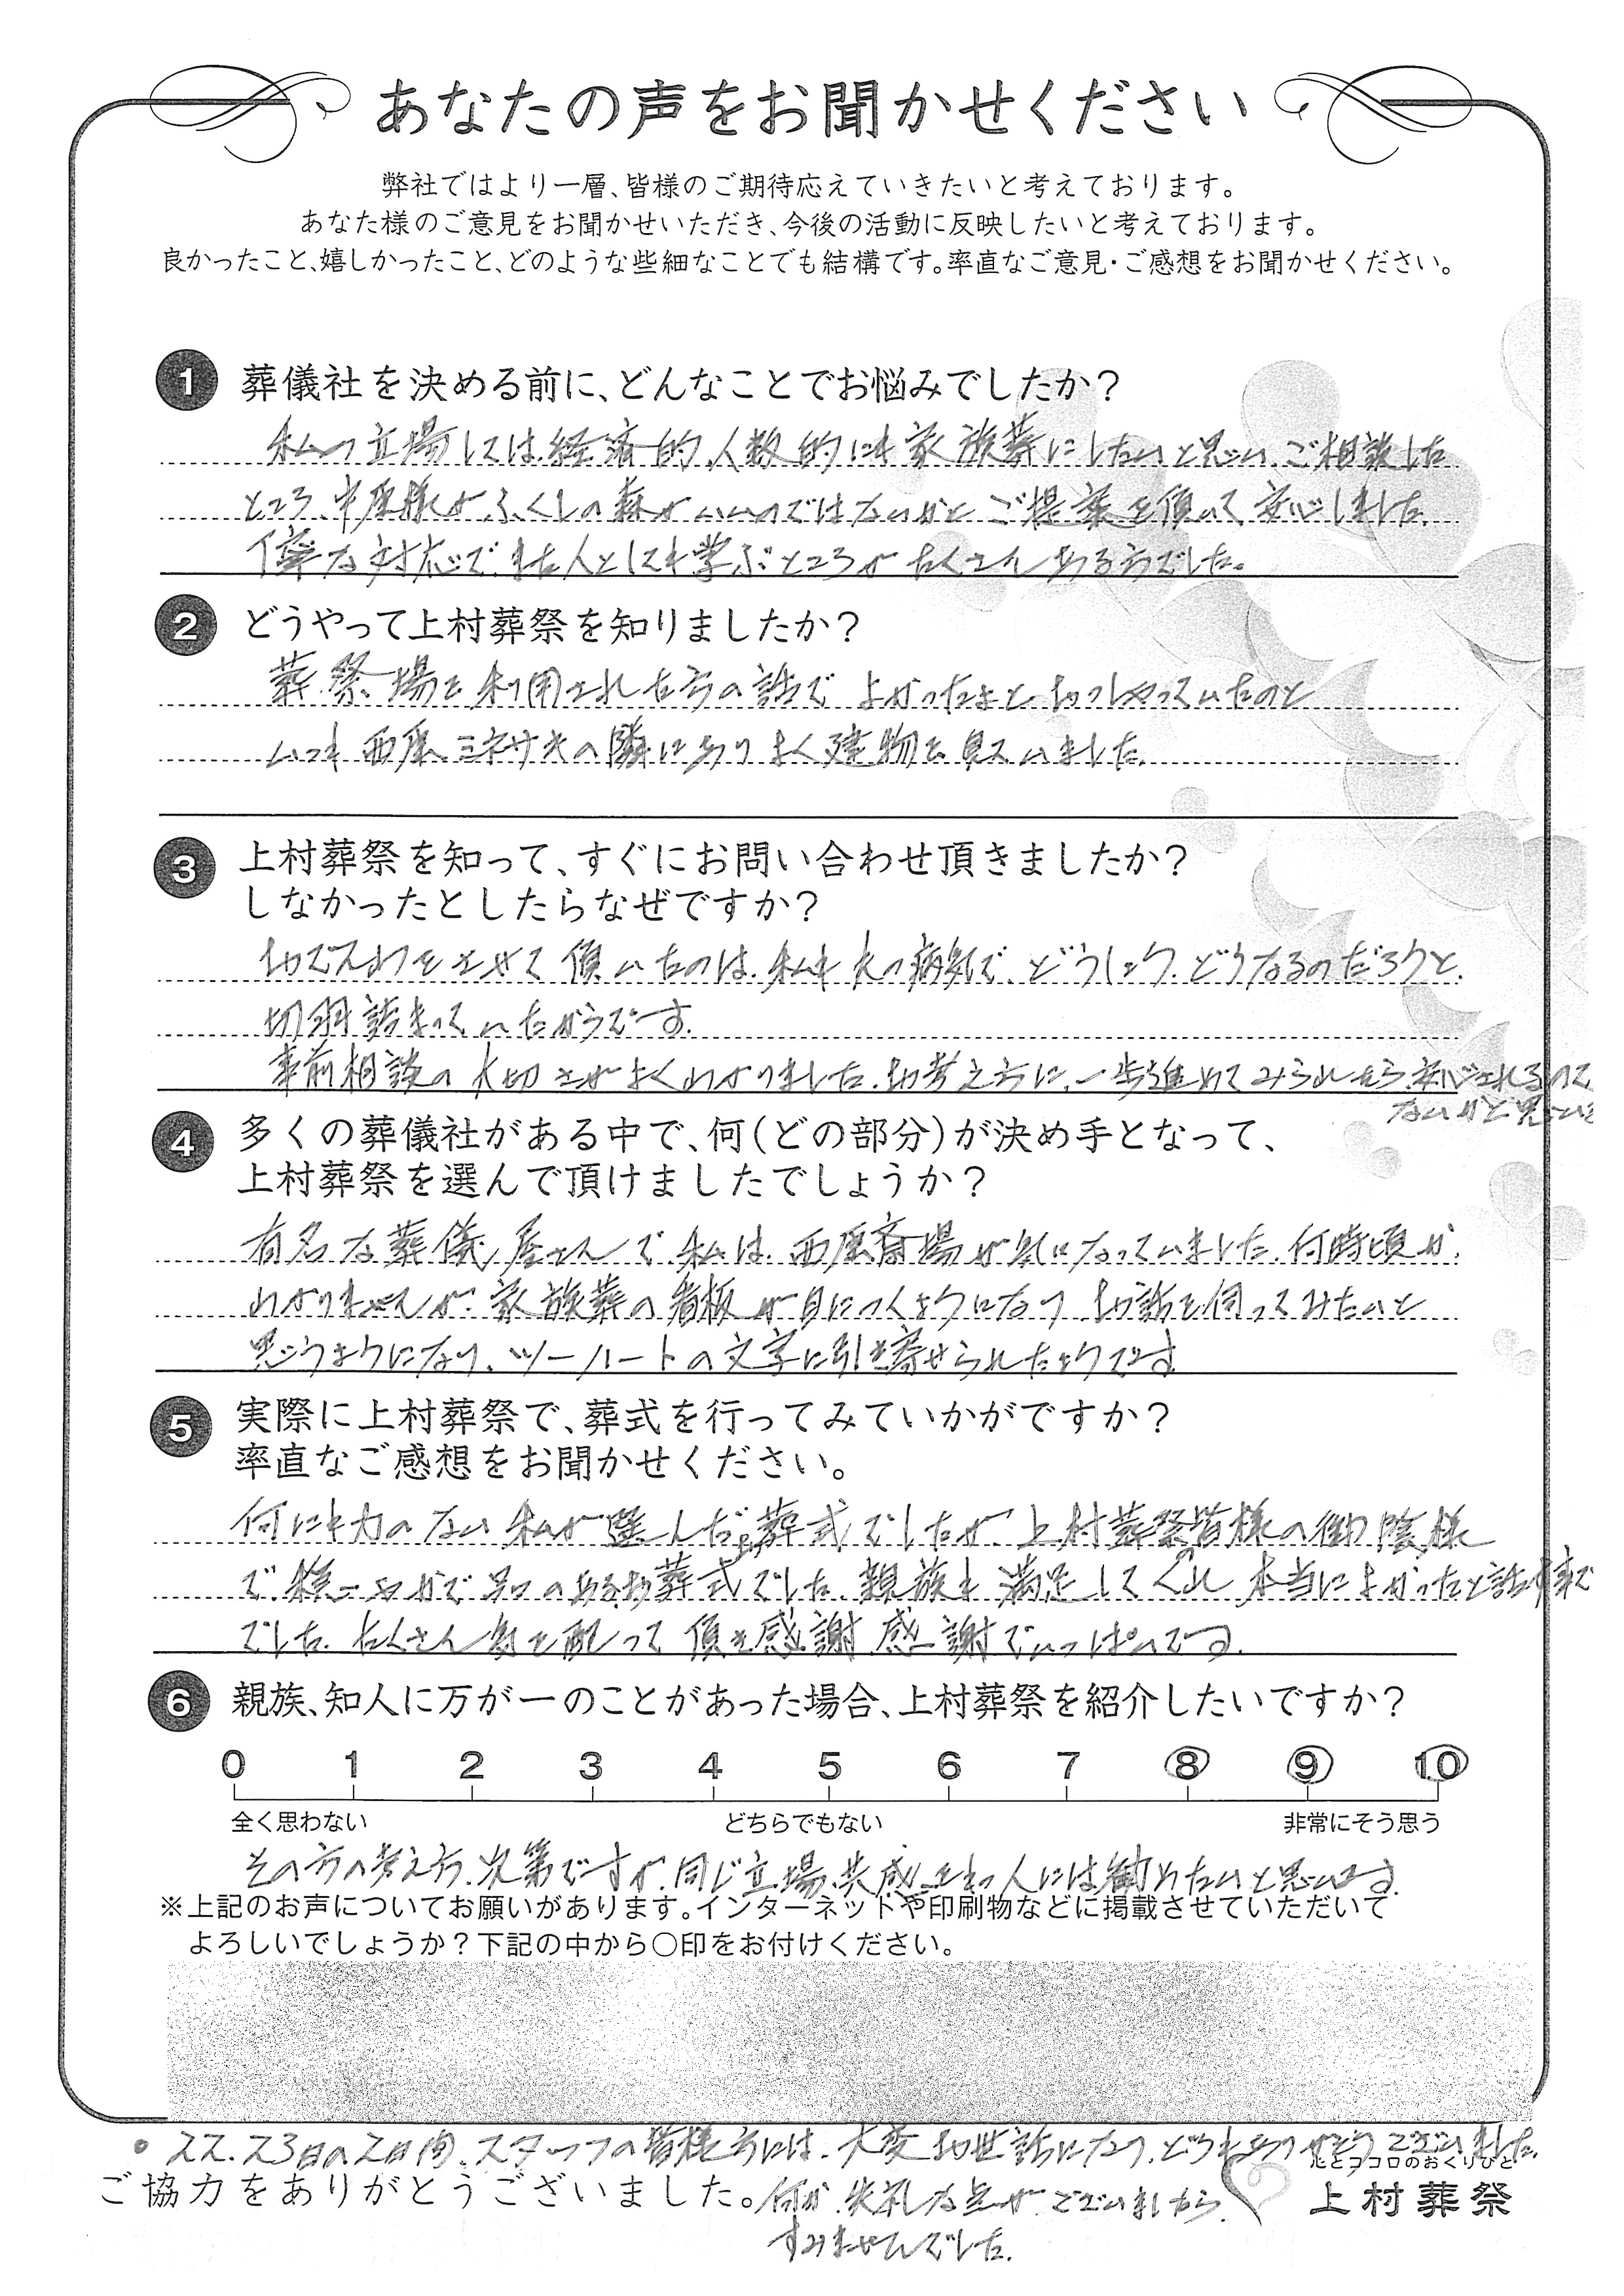 あなたの声をお聞かせください
弊社ではより一層、皆様のご期待応えていきたいと考えております。
あなた様のご意見をお聞かせいただき、今後の活動に反映したいと考えております。
良かったこと、嬉しかったこと、どのような些細なことでも結構です。率直なご意見・ご感想をお聞かせください。
1 葬儀社を決める前に、どんなことでお悩みでしたか?
私の立場しては経済的、人数的にも家族葬にしたいと思い、ご相談した
ところ、中原様が、ふくしの森がいいのではないかと ご提案を頂いて、安心しました。
丁寧な対応で、また人としても学ぶところが たくさん ある方でした。
2 どうやって上村葬祭を知りましたか?
葬祭場を利用された方の話で よかったよと おっしゃっていたのと
いつも 西原ミネサキの隣にあり よく建物を見ていました。
3 上村葬祭を知って、すぐにお問い合わせ頂きましたか?
しなかったとしたらなぜですか?
させて頂いたのは、私も夫の病気で、どうしよう、どうなるのだろうと、
切羽詰まっていたからです。
事前相談の大切さがよくわかりました。お考え方に、一歩進めてみられたら、安心されるので
ないかと思い
4 多くの葬儀社がある中で、何(どの部分)が決め手となって、
上村葬祭を選んで頂けましたでしょうか?
有名な葬儀屋さんで、私は、西原斎場が気になっていました。何時頃か、
わかりませんが、家族葬の看板が目につくようになり お話を伺ってみたいと
思うようになり、ツーハートの文字に引き寄せられたようです
5 実際に上村葬祭で、葬式を行ってみていかがですか?
率直なご感想をお聞かせください。
何にも力のない私が選んだお葬式でしたが、上村葬祭の皆様の御陰様
で、のあるお葬式でした。親族も満足してくれ 本当によかったと話事で
でした。たくさん気を配って頂き感謝、感謝でいっぱいです。
6 親族、知人に万が一のことがあった場合、上村葬祭を紹介したいですか?
0 1 2 3 4 5 6 7 8 9 10
全く思わない どちらでもない 非常にそう思う
その方の考え方、次第ですが、同じ立場、共感をもつ人には勧めたいと思います。
※上記のお声についてお願いがあります。インターネットや印刷物などに掲載させていただいて
よろしいでしょうか?下記の中から○印をお付けください。
• 22.23日の2日間、スタッフの皆様方には、大変お世話になり、どうもありがとうございました。
心とココロのおくりびと
ご協力をありがとうございました。何か、失礼な点がございましたら、
上村葬祭
すみませんでした。